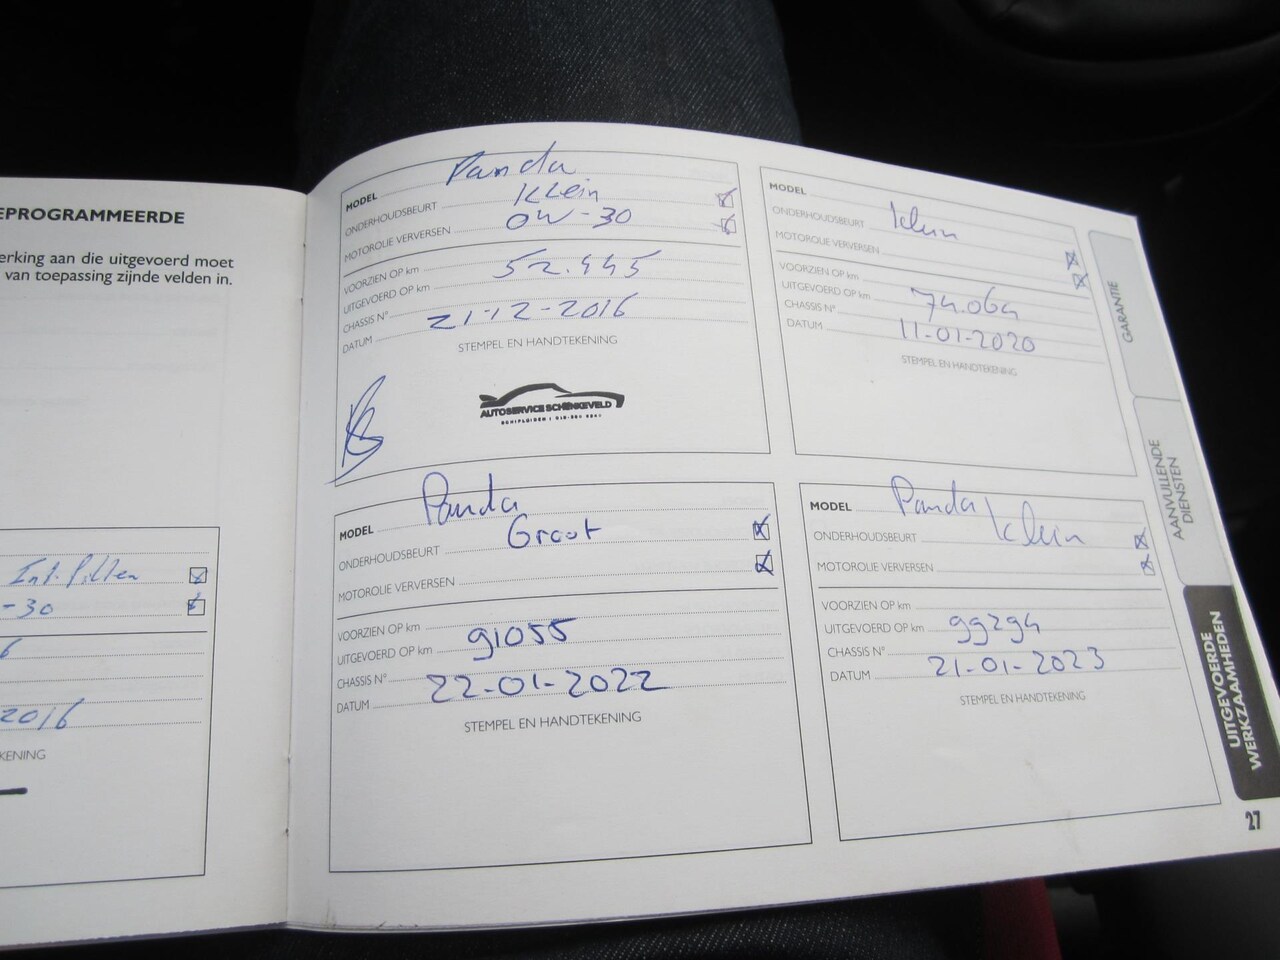 EPROGRAMMEERDE
erking aan die uitgevoerd moet
van toepassing zijnde velden in.
Int. filter
-30
6
2016
KENING
MODEL Panda
ONDERHOUDSBEURT Klein
MOTOROLIE VERVERSEN 0W-30
VOORZIEN OP km
UITGEVOERD OP km 52.445
CHASSIS N°
DATUM 21-12-2016
STEMPEL EN HANDTEKENING
AUTOSERVICE SCHENKEVELD
MODEL
ONDERHOUDSBEURT Klein
MOTOROLIE VERVERSEN
VOORZIEN OP km
UITGEVOERD OP km 74.064
CHASSIS N°
DATUM 11-01-2020
STEMPEL EN HANDTEKENING
MODEL Panda
ONDERHOUDSBEURT Groot
MOTOROLIE VERVERSEN
VOORZIEN OP km
UITGEVOERD OP km 91055
CHASSIS N°
DATUM 22-01-2022
STEMPEL EN HANDTEKENING
MODEL Panda
ONDERHOUDSBEURT Klein
MOTOROLIE VERVERSEN
VOORZIEN OP km
UITGEVOERD OP km 99294
CHASSIS N°
DATUM 21-01-2023
STEMPEL EN HANDTEKENING
GARANTIE
AANVULLENDE
DIENSTEN
UITGEVOERDE
WERKZAAMHEDEN
27